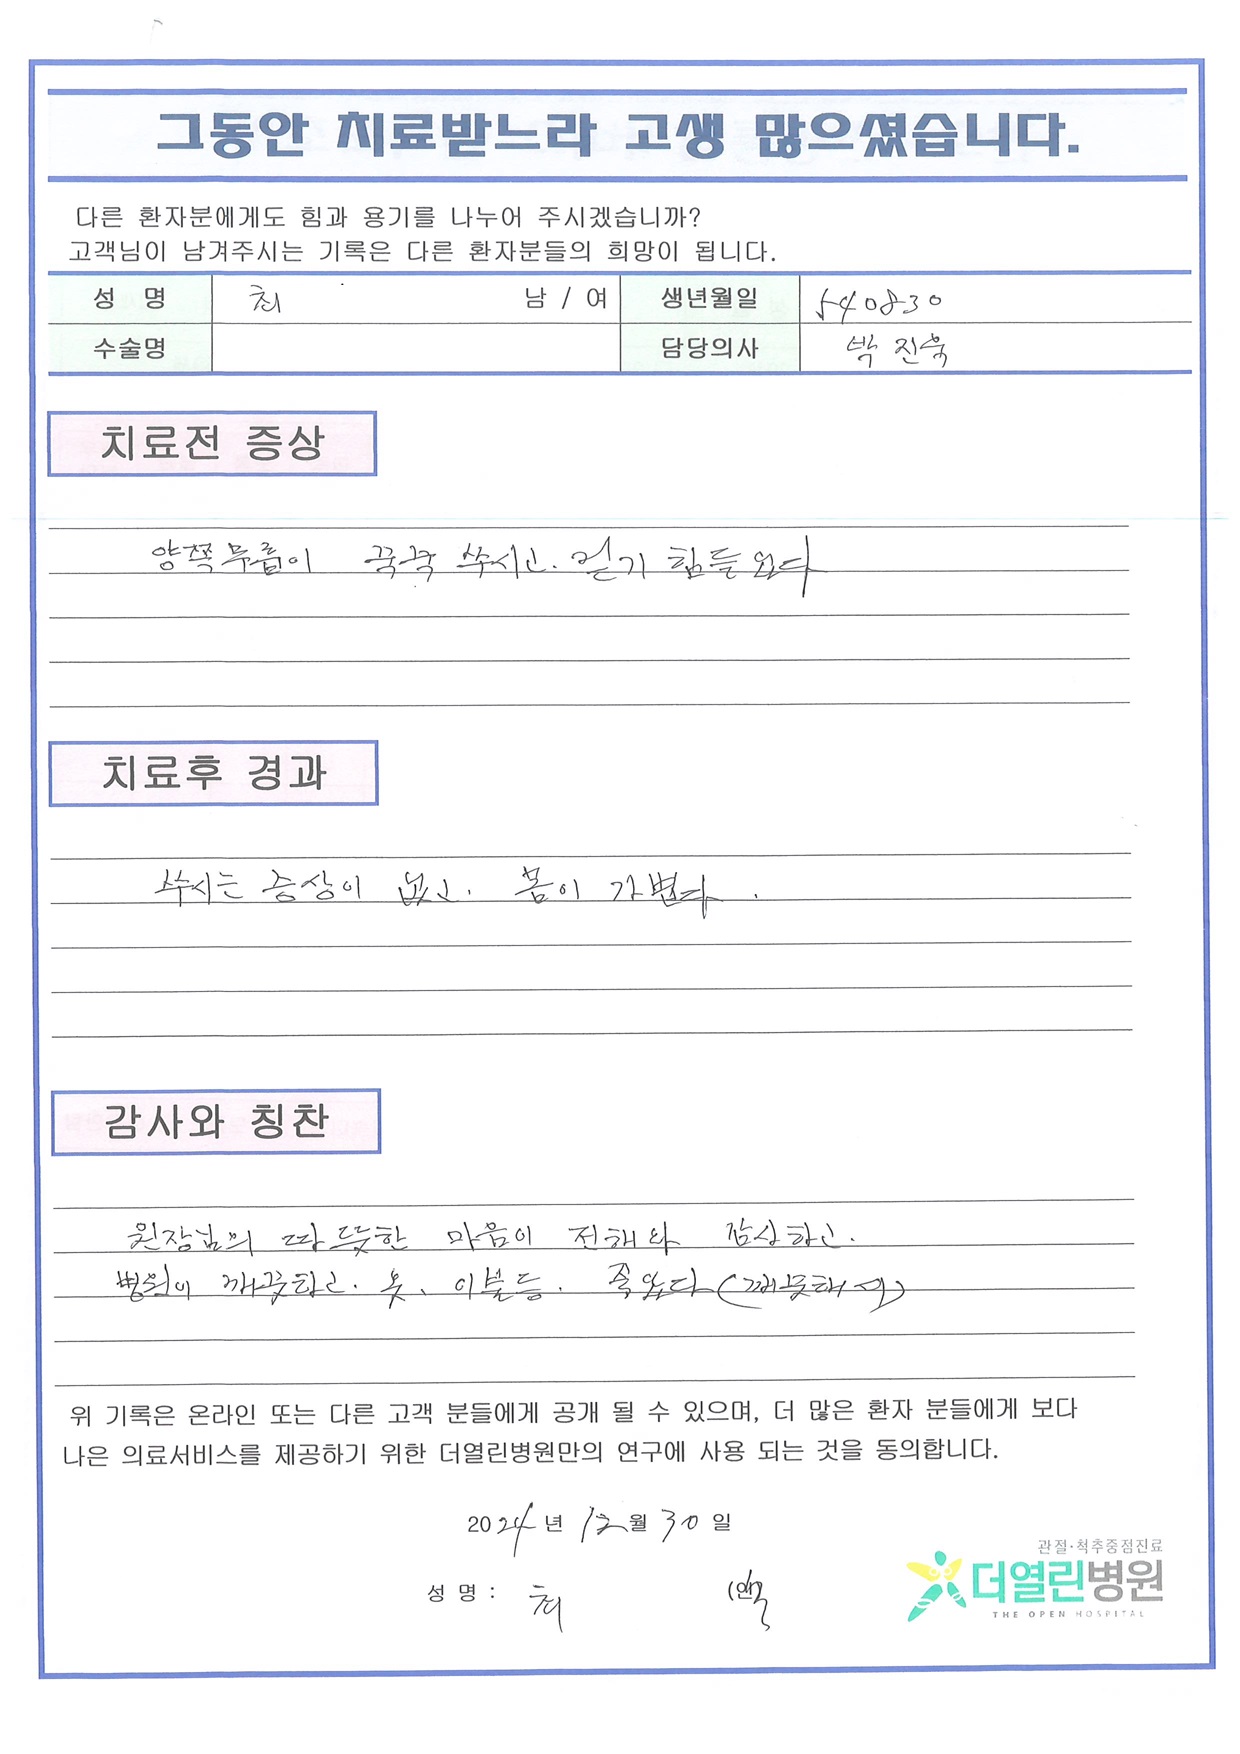 그동안 치료받느라 고생 많으셨습니다.
다른 환자분에게도 힘과 용기를 나누어 주시겠습니까?
고객님이 남겨주시는 기록은 다른 환자분들의 희망이 됩니다.
성 명 최 남 / 여 생년월일 540830
수술명 담당의사 박진욱
치료전 증상
양쪽무릎이 쿡쿡 쑤시고. 걷기 힘들었다
치료후 경과
쑤시는 증상이 없고. 몸이 가볍다.
감사와 칭찬
원장님의 따뜻한 마음이 전해와 감사하고.
병원이 깨끗하고. 옷、이불등. 좋았다 (깨끗해서)
위 기록은 온라인 또는 다른 고객 분들에게 공개 될 수 있으며, 더 많은 환자 분들에게 보다
나은 의료서비스를 제공하기 위한 더열린병원만의 연구에 사용 되는 것을 동의합니다.
2024년 12월 30일
관절·척추중점진료
더열린병원
THE OPEN HOSPITAL
성 명 : 최 (인)